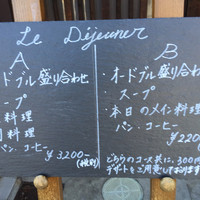 Le Déjeuner
A
ドブル盛り合わせ
ープ
料理
料理
パン・コーヒー
¥3200-
(税別)
B
・オードブル盛り合わせ
・スープ
・本日のメイン料理
パン・コーヒー
¥220
どちらのコース共に、300円
デザートをご用意しております